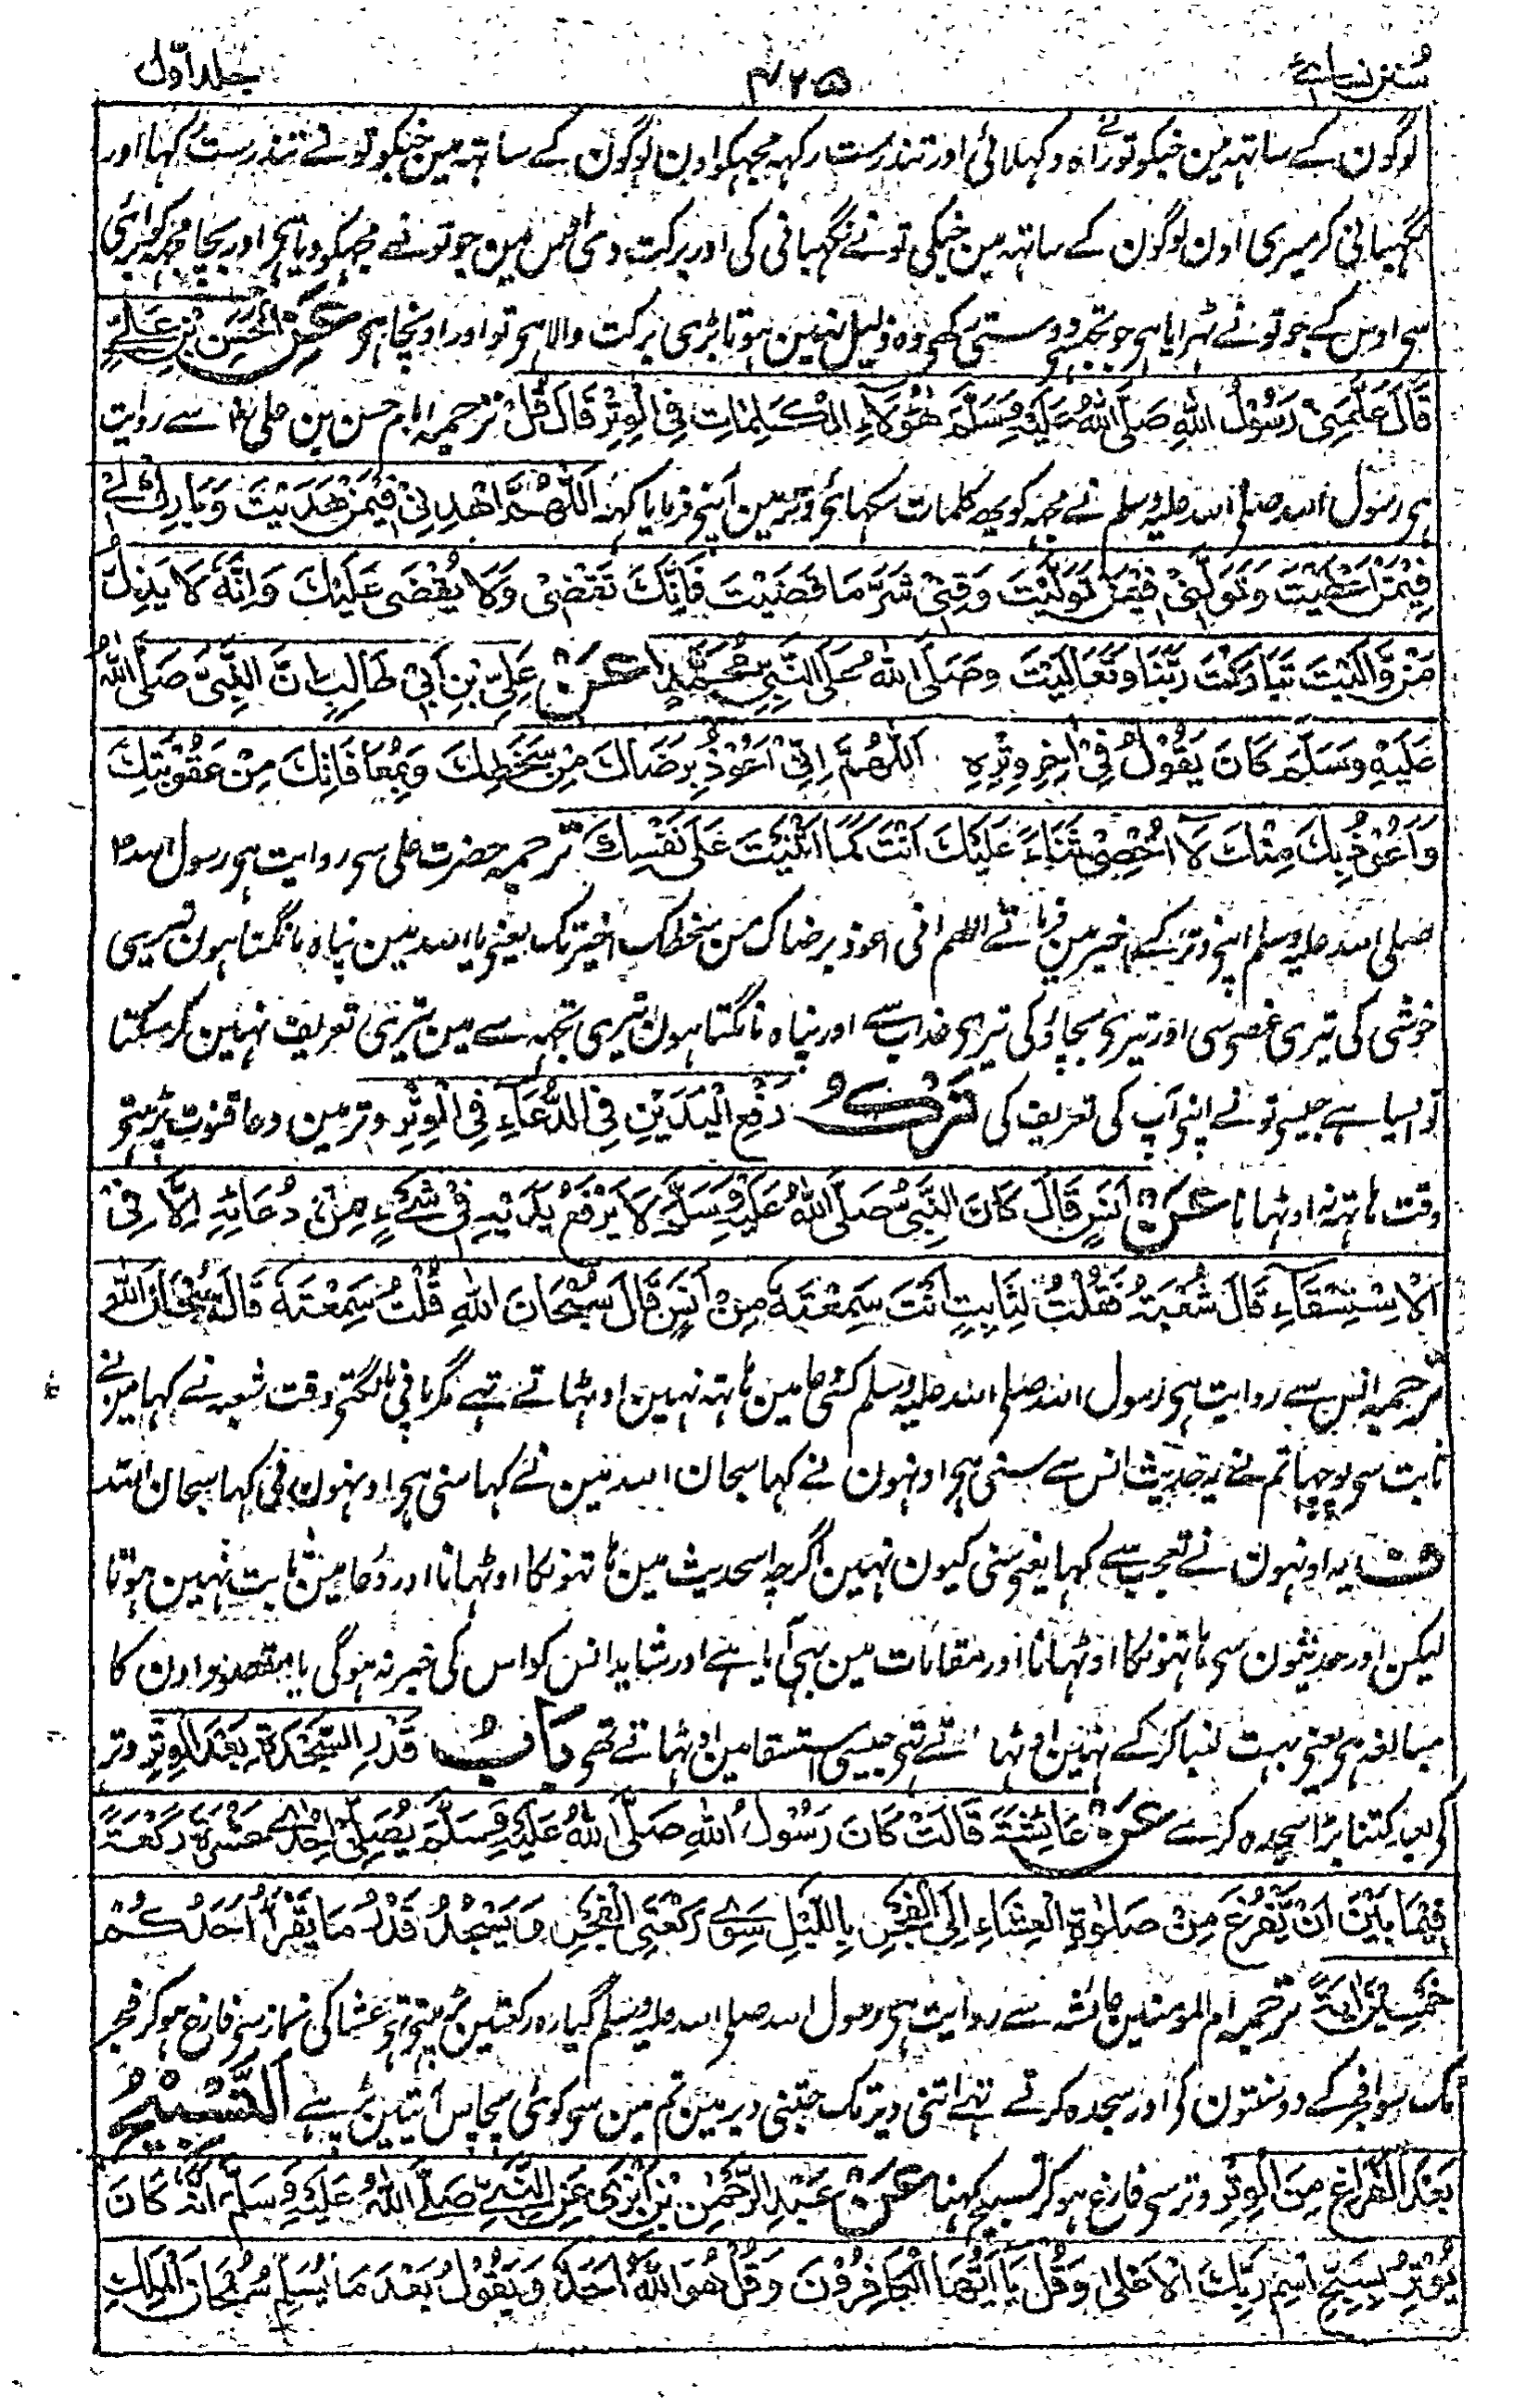 سُنن نسائی ۴۲۵ جلد اوّل
لوگون کے ساتہہ مین جنکو تو نے راہ دکہلائی اور تندرست رکہہ مجہکو اون لوگون کے ساتہہ مین جنکو تو نے تندرست کہا اور
نگہبانی کر میری اون لوگون کے ساتہہ مین جنکی تو نے نگہبانی کی اور برکت دی اس مین جو تو نے مجہکو دیا ہی اور بچا مجہہ کو برائی
سی اوس کے جو تو نے ٹہرایا ہی جو تجہسی دوستی رکہی وہ ذلیل نہین ہوتا بڑی برکت والا ہی تو اور اونچا ہی عَنِ الْحَسَنِ بْنِ عَلِیٍّ
قَالَ عَلَّمَنِیْ رَسُوْلُ اللّٰهِ صَلَّی اللّٰهُ عَلَیْهِ وَسَلَّمَ هٰؤُلَاءِ الْکَلِمَاتِ فِی الْوِتْرِ قَالَ قُلْ ترجمہ امام حسن بن علی رض سے روایت
ہی رسول اللہ صلی اللہ علیہ وسلم نے مجہہ کو یہہ کلمات سکہائی وتر مین آپنی فرمایا کہہ اَللّٰهُمَّ اهْدِنِیْ فِیْمَنْ هَدَیْتَ وَبَارِكْ لِیْ
فِیْمَنْ اَعْطَیْتَ وَتَوَلَّنِیْ فِیْمَنْ تَوَلَّیْتَ وَقِنِیْ شَرَّ مَا قَضَیْتَ فَاِنَّكَ تَقْضِیْ وَلَا یُقْضٰی عَلَیْكَ وَاِنَّهٗ لَا یَذِلُّ
مَنْ وَّالَیْتَ تَبَارَکْتَ رَبَّنَا وَتَعَالَیْتَ وَصَلَّی اللّٰهُ عَلَی النَّبِیِّ مُحَمَّدٍ عَنْ عَلِیِّ بْنِ اَبِیْ طَالِبٍ اَنَّ النَّبِیَّ صَلَّی اللّٰهُ
عَلَیْهِ وَسَلَّمَ کَانَ یَقُوْلُ فِیْ اٰخِرِ وِتْرِهٖ اَللّٰهُمَّ اِنِّیْ اَعُوْذُ بِرِضَاكَ مِنْ سَخَطِكَ وَبِمُعَافَاتِكَ مِنْ عُقُوْبَتِكَ
وَاَعُوْذُ بِكَ مِنْكَ لَا اُحْصِیْ ثَنَاءً عَلَیْكَ اَنْتَ کَمَا اَثْنَیْتَ عَلٰی نَفْسِكَ ترجمہ حضرت علی سی روایت ہی رسول اللہ
صلی اللہ علیہ وسلم اپنی وتر کے اخیر مین فرماتے اللهم انی اعوذ برضاک من سخطک اخیر تک یعنی یا اللہ مین پناہ مانگتا ہون تیری
خوشی کی تیری غصی سی اور تیری بچاؤ کی تیری عذاب سے اور پناہ مانگتا ہون تیری تجہہ سے مین تیری تعریف نہین کر سکتا
تو ایسا ہے جیسے تو نے اپنی آپ کی تعریف کی تَرْكُ رَفْعِ الْیَدَیْنِ فِی الدُّعَاءِ فِی الْوِتْرِ وتر مین دعا قنوت پڑہتی
وقت ہاتہہ نہ اوٹہانا عَنْ اَنَسٍ قَالَ کَانَ النَّبِیُّ صَلَّی اللّٰهُ عَلَیْهِ وَسَلَّمَ لَا یَرْفَعُ یَدَیْهِ فِیْ شَیْءٍ مِنْ دُعَائِهٖ اِلَّا فِی
الْاِسْتِسْقَاءِ قَالَ شُعْبَةُ فَقُلْتُ لِثَابِتٍ اَنْتَ سَمِعْتَهٗ مِنْ اَنَسٍ قَالَ سُبْحَانَ اللّٰهِ قُلْتُ سَمِعْتَهٗ قَالَ سُبْحَانَ اللّٰهِ
ترجمہ انس سے روایت ہی رسول اللہ صلی اللہ علیہ وسلم کسی دعا مین ہاتہہ نہین اوٹہاتے تہے مگر پانی مانگتی وقت شعبہ نے کہا مین نے
ثابت سی پوچہا تم نے یہ حدیث انس سے سنی ہی اونہون نے کہا سبحان اللہ مین نے کہا سنی ہی اونہون نی کہا سبحان اللہ
ف یہ اونہون نے تعجب سے کہا یعنی سنی کیون نہین اگرچہ اسحدیث مین ہاتہونکا اوٹہانا اور دعا مین ثابت نہین ہوتا
لیکن اور حدیثون سی ہاتہونکا اوٹہانا اور مقامات مین بہی آیا ہے اور شاید انس کو اس کی خبر نہ ہوگی یا مقصود اون کا
مبالغہ ہی یعنی بہت لنبا کر کے نہین اوٹہاتے تہی جیسی استسقا مین اوٹہاتے تہی بَابُ قَدْرِ السَّجْدَةِ بَعْدَ الْوِتْرِ وتر
کی بعد کتنا بڑا سجدہ کرے عَنْ عَائِشَةَ قَالَتْ کَانَ رَسُوْلُ اللّٰهِ صَلَّی اللّٰهُ عَلَیْهِ وَسَلَّمَ یُصَلِّیْ اِحْدٰی عَشْرَةَ رَکْعَةً
فِیْمَا بَیْنَ اَنْ یَّفْرُغَ مِنْ صَلٰوةِ الْعِشَاءِ اِلَی الْفَجْرِ بِاللَّیْلِ سِوٰی رَکْعَتَیِ الْفَجْرِ وَیَسْجُدُ قَدْرَ مَا یَقْرَأُ اَحَدُکُمْ
خَمْسِیْنَ اٰیَةً ترجمہ ام المومنین عائشہ سے روایت ہی رسول اللہ صلی اللہ علیہ وسلم گیارہ رکعتین پڑہتی تہی عشا کی نماز سی فارغ ہو کر فجر
تک سوا فجر کے دو سنتون کی اور سجدہ کرتے تہے اتنی دیر تک جتنی دیر مین تم مین سی کوئی پچاس آیتین پڑہے اَلتَّسْبِیْحُ
بَعْدَ الْفَرَاغِ مِنَ الْوِتْرِ وتر سی فارغ ہو کر تسبیح کہنا عَنْ عَبْدِ الرَّحْمٰنِ بْنِ اَبْزٰی عَنِ النَّبِیِّ صَلَّی اللّٰهُ عَلَیْهِ وَسَلَّمَ اَنَّهٗ کَانَ
یُوْتِرُ بِسَبِّحِ اسْمَ رَبِّكَ الْاَعْلٰی وَقُلْ یَا اَیُّهَا الْکَافِرُوْنَ وَقُلْ هُوَ اللّٰهُ اَحَدٌ وَیَقُوْلُ بَعْدَ مَا یُسَلِّمُ سُبْحَانَ الْمَلِكِ